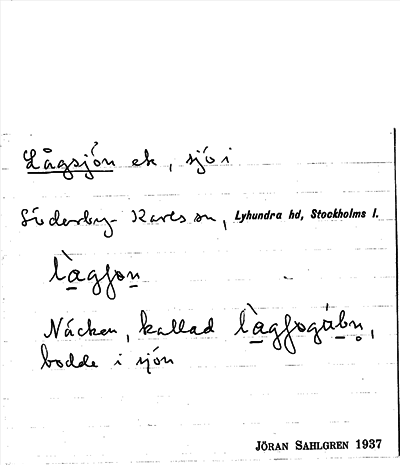 Lågsjón ek, sjö i
Söderby-Karls sn, Lyhundra hd, Stockholms l.
làgſǫn
Näcken, kallad làgſogúbn,
bodde i sjön
JÖRAN SAHLGREN 1937